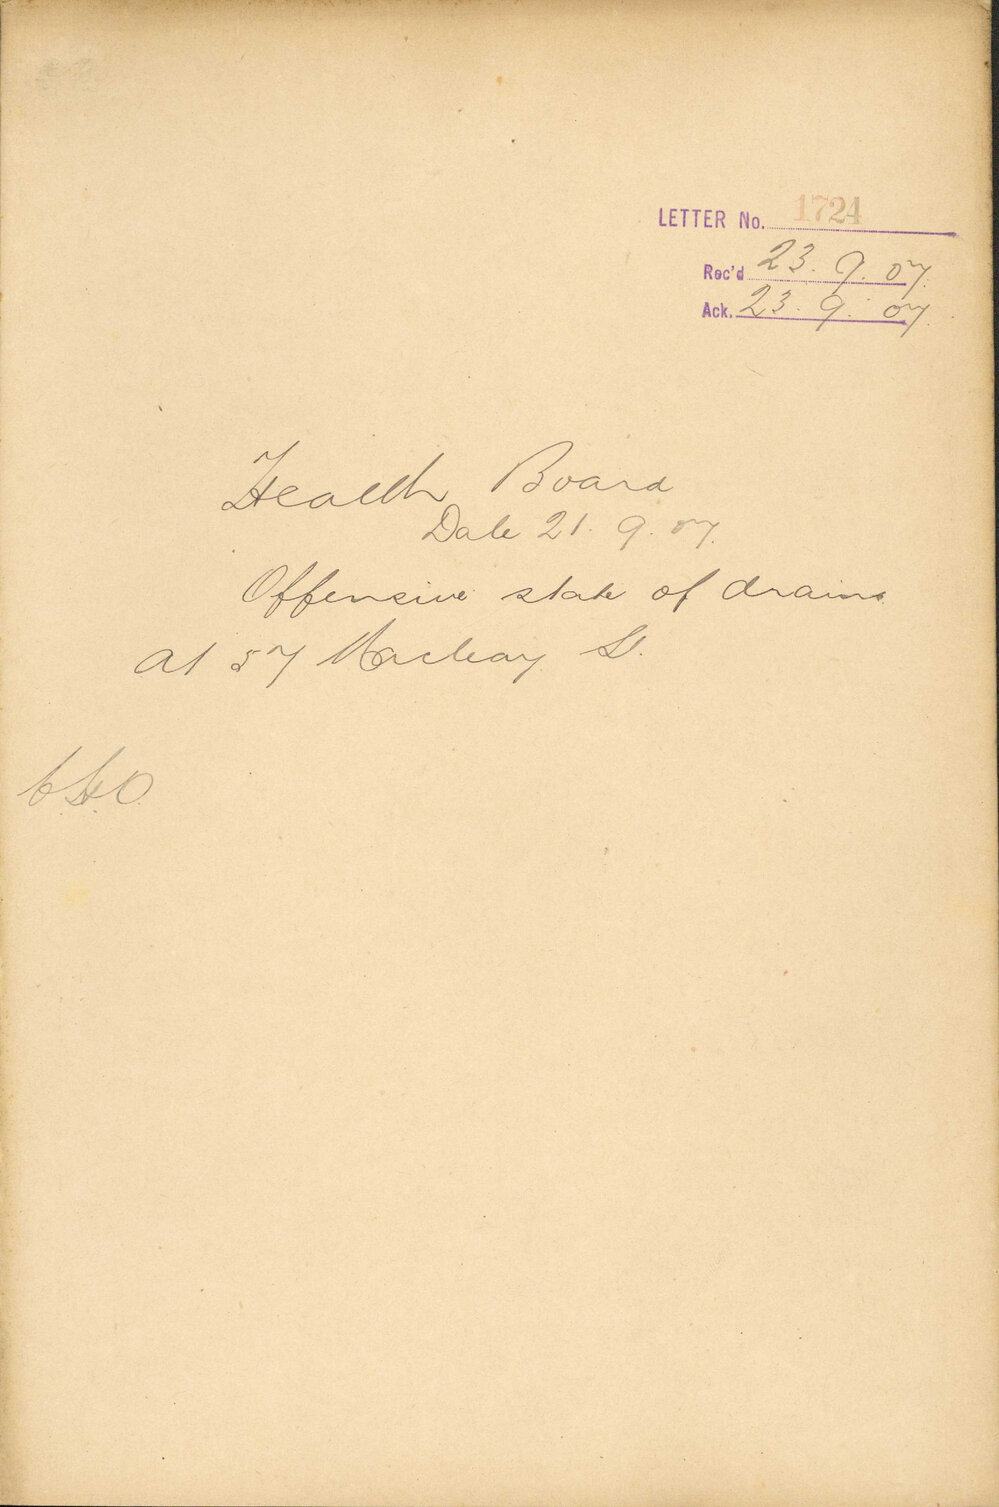 LETTER No. 1724
Rec'd 23. 9. 07.
Ack. 23. 9. 07.
Health Board
Date 21. 9. 07.
Offensive state of drains
at 57 Macleay St.
C.H.O.